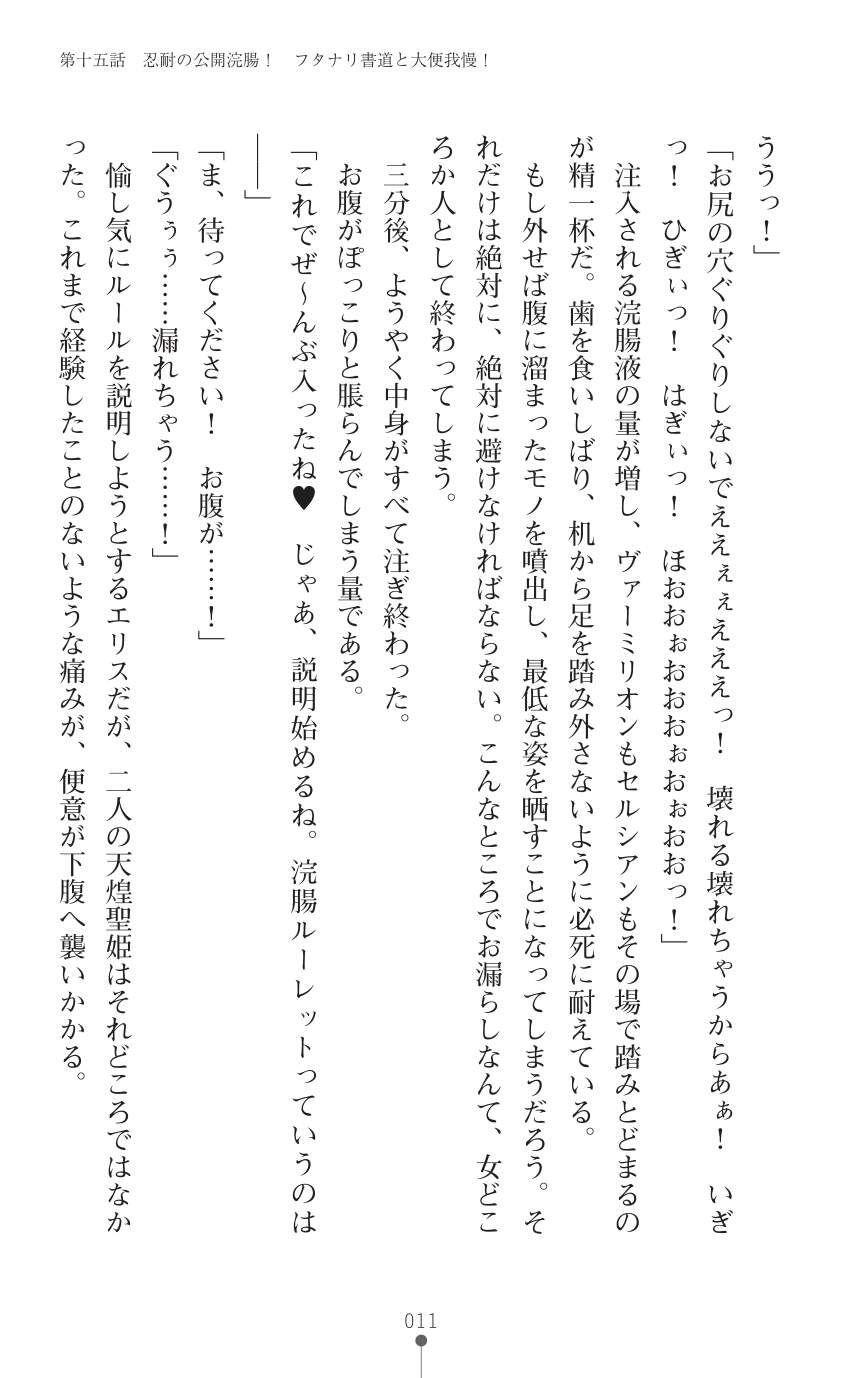 第十五話　忍耐の公開浣腸！　フタナリ書道と大便我慢！
ううっ！」
「お尻の穴ぐりぐりしないでええぇぇえええっ！　壊れる壊れちゃうからあぁ！　いぎ
っ！　ひぎぃっ！　はぎぃっ！　ほおおぉおおおぉおぉおおっ！」
　注入される浣腸液の量が増し、ヴァーミリオンもセルシアンもその場で踏みとどまるの
が精一杯だ。歯を食いしばり、机から足を踏み外さないように必死に耐えている。
　もし外せば腹に溜まったモノを噴出し、最低な姿を晒すことになってしまうだろう。そ
れだけは絶対に、絶対に避けなければならない。こんなところでお漏らしなんて、女どこ
ろか人として終わってしまう。
　三分後、ようやく中身がすべて注ぎ終わった。
　お腹がぽっこりと脹らんでしまう量である。
「これでぜ～んぶ入ったね♥　じゃあ、説明始めるね。浣腸ルーレットっていうのは
――」
「ま、待ってください！　お腹が……！」
「ぐうぅぅ……漏れちゃう……！」
　愉し気にルールを説明しようとするエリスだが、二人の天煌聖姫はそれどころではなか
った。これまで経験したことのないような痛みが、便意が下腹へ襲いかかる。
011